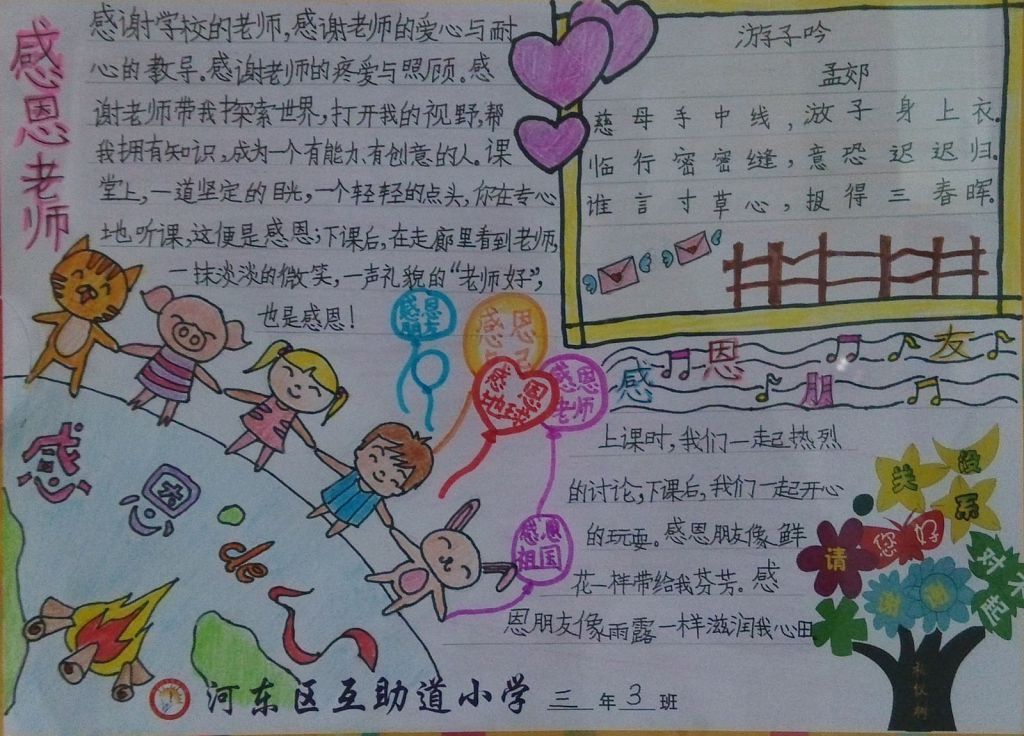 感恩老师
感谢学校的老师,感谢老师的爱心与耐
心的教导。感谢老师的疼爱与照顾。感
谢老师带我探索世界,打开我的视野,帮
我拥有知识,成为一个有能力、有创意的人。课
堂上,一道坚定的目光,一个轻轻的点头,你在专心
地听课,这便是感恩;下课后,在走廊里看到老师,
一抹淡淡的微笑,一声礼貌的“老师好”,
也是感恩!
游子吟
孟郊
慈母手中线,游子身上衣。
临行密密缝,意恐迟迟归。
谁言寸草心,报得三春晖。
感恩朋友
感恩
感恩地球
感恩老师
感恩祖国
感恩朋友
上课时,我们一起热烈
的讨论,下课后,我们一起开心
的玩耍。感恩朋友像鲜
花一样带给我芬芳。感
恩朋友像雨露一样滋润我心田。
感恩de心
没关系
您好
请
谢谢
对不起
礼仪树
河东区互助道小学 三年3班